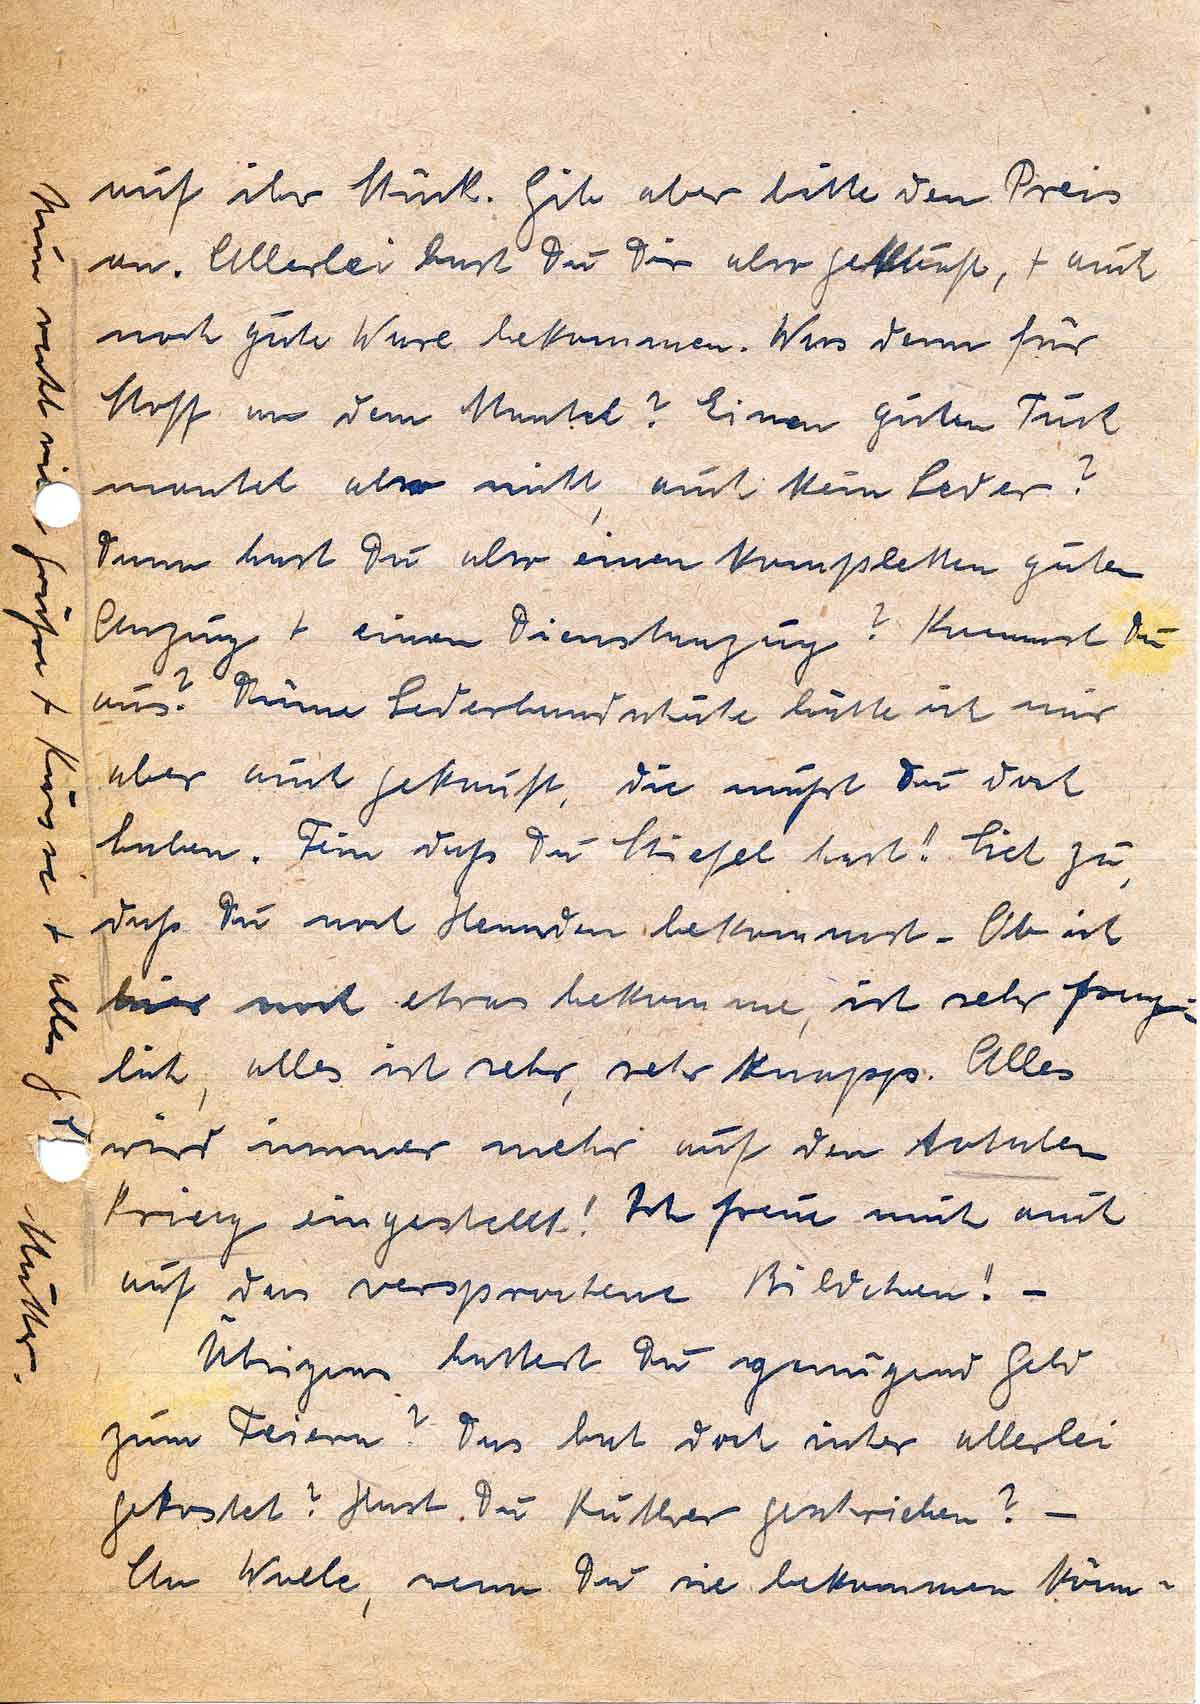 auf ihr Stück. Gib aber bitte den Preis
an. Allerlei hast Du Dir also gekauft, + auch
noch gute Ware bekommen. Was denn für
Stoff an dem Mantel? Einen guten Tuch
mantel also nicht, auch kein Leder?
Dann hast Du also einen kompletten guten
Anzug + einen Dienstanzug? Kommst Du
aus? Deine Lederhandschuhe hätte ich mir
aber auch gekauft, die mußt Du doch
haben. Fein daß Du Stiefel hast! Sieh zu,
daß Du noch Hemden bekommst - Ob ich
hier noch etwas bekomme, ist sehr frag-
lich, alles ist sehr, sehr knapp. Alles
wird immer mehr auf den totalen
Krieg eingestellt! Ich freue mich auch
auf das versprochene Bildchen! -
Übrigens hattest Du genügend Geld
zum Feiern? Das hat doch sicher allerlei
gekostet? Hast Du Kuther geschrieben? -
An Wolle, wenn Du sie bekommen könn-
Nun recht viele + Küsse + alles
Mutter.